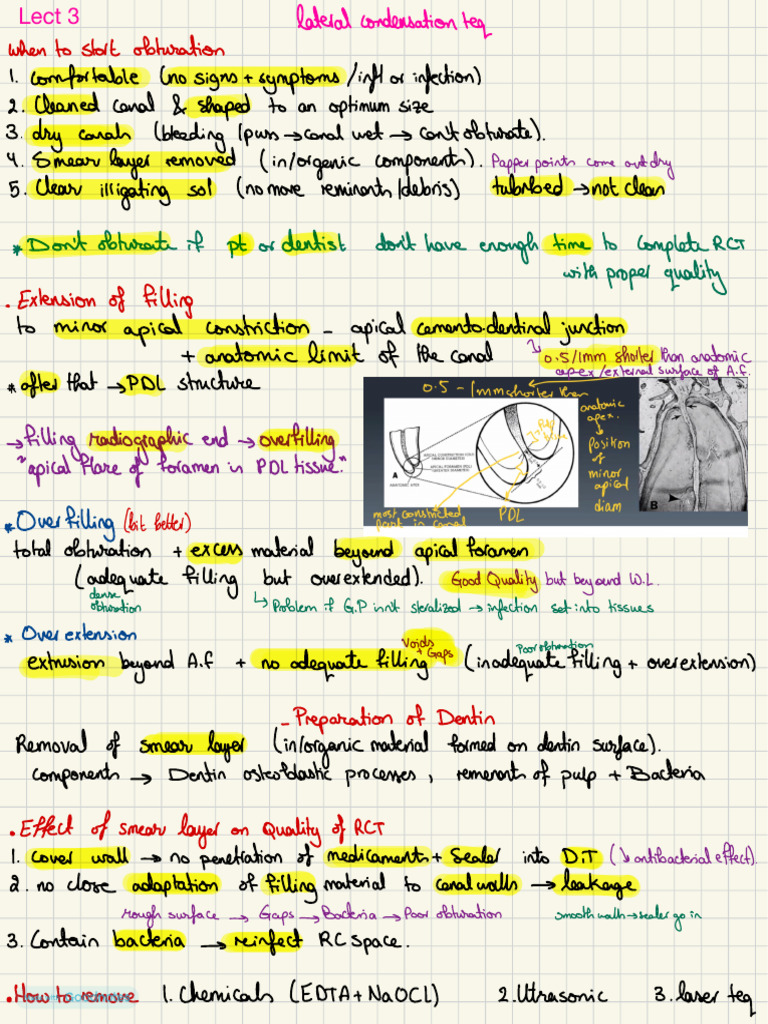 Lect 3
lateral condensation teq
when to start obturation
1. comfortable (no signs + symptoms / infl or infection)
2. Cleaned canal & shaped to an optimum size
3. dry canals (bleeding / pus → canal wet → can't obturate).
4. Smear layer removed (in/organic components). Papper points come out dry
5. Clear irrigating sol (no more reminants/debris) tubribed → not clean
* Don't obturate if pt or dentist don't have enough time to complete RCT
with proper quality
. Extension of filling
to minor apical constriction - apical cemento-dentinal junction
+ anatomic limit of the canal 0.5/1mm shorter than anatomic
apex/external surface of A.F.
* after that → PDL structure
0.5 - 1mm shorter than
anatomic
apex.
Position
of
minor
apical
diam
Pulp
APICAL CONSTRICTION
MINOR DIAMETER
APICAL FORAMEN
GREATEST DIAMETER
ANATOMIC APEX
A
B
most constricted
point in canal
PDL
→ filling radiographic end → overfilling
"apical Plare of foramen in PDL tissue."
* Over filling (bit better)
total obturation + excess material beyond apical foramen
(adequate filling but overextended). Good Quality but beyond W.L.
dense
obturation
↳ Problem if G.P isn't steralized → infection set into tissues
* Over extension
Voids
+ Gaps
Poor obturation
extrusion beyond A.f + no adequate filling (inadequate filling + overextension)
- Preparation of Dentin
Removal of smear layer (in/organic material formed on dentin surface).
components → Dentin osteoblastic processes, remenants of pulp + Bacteria
. Effect of smear layer on Quality of RCT
1. cover wall → no penetration of medicament + Sealer into D.T (↓ antibacterial effect).
2. no close adaptation of filling material to canal walls → leakage
rough surface → Gaps → Bacteria → Poor obturation smooth walls → sealer go in
3. Contain bacteria → reinfect RC space.
. How to remove 1. Chemicals (EDTA + NaOCL) 2. Utrasonic 3. laser teq